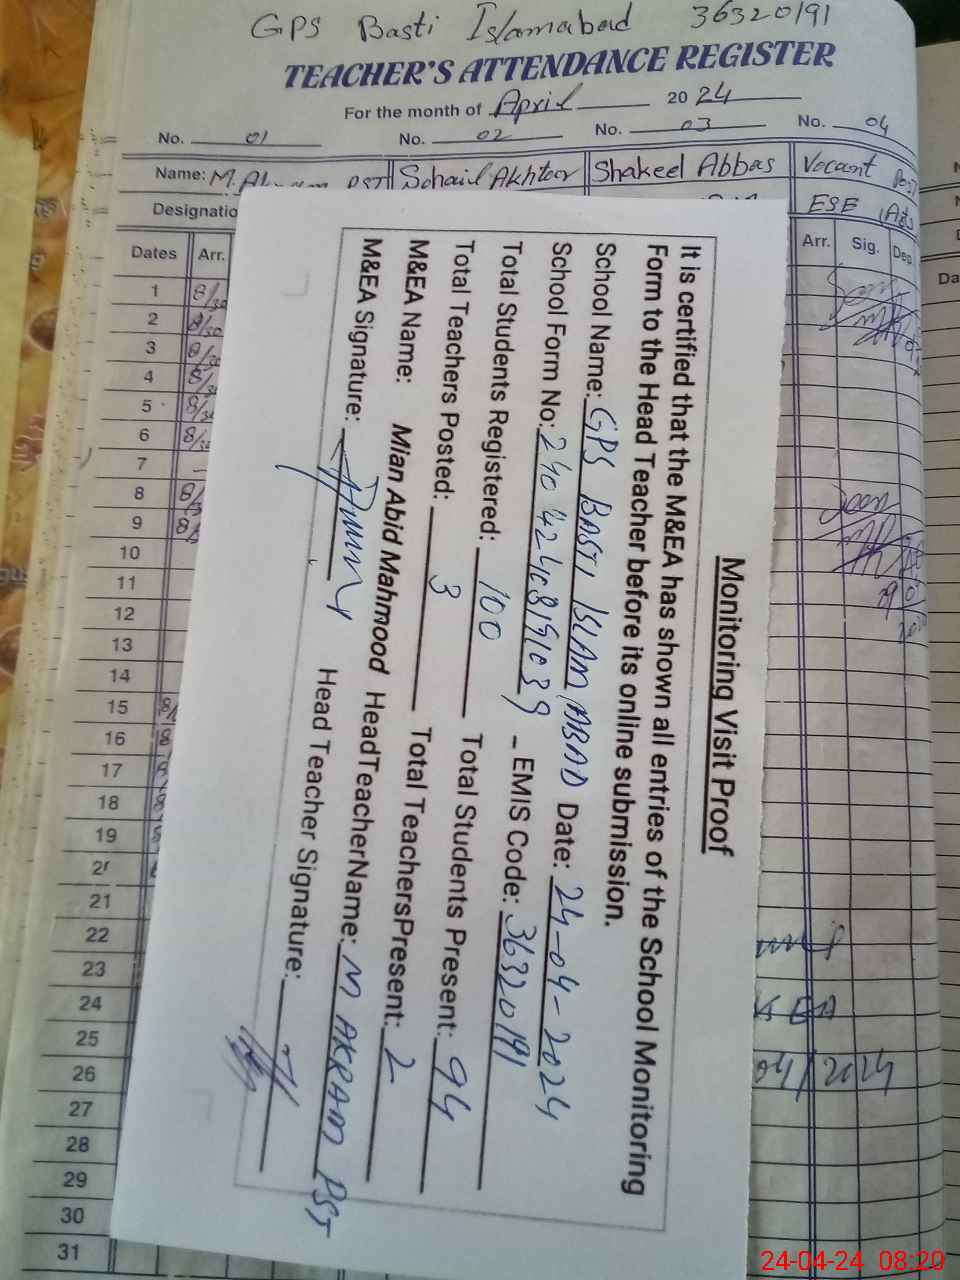 GPS Basti Islamabad 36320191
TEACHER'S ATTENDANCE REGISTER
For the month of April 2024
No. 01 No. 02 No. 03 No. 04
Name: M. PST Sohail Akhtar Shakeel Abbas Vacant Post
Designatio ESE Arts
Dates Arr. Arr. Sig. Dep.
1 8/30
2 8/30
3 8/30
4 8/30
5 8/30
6 8/30
7
8 8/
9 8/
10
11
12
13
14
15 8/
16 8
17 8
18 8
19 8
2
21
22
23
24 EA
25
26 04/2024
27
28
29
30
31
Da
Monitoring Visit Proof
It is certified that the M&EA has shown all entries of the School Monitoring
Form to the Head Teacher before its online submission.
School Name: GPS BASTI ISLAMABAD Date: 24-04-2024
School Form No: EMIS Code: 36320191
Total Students Registered: 100 Total Students Present: 94
Total Teachers Posted: 3 Total TeachersPresent: 2
M&EA Name: Mian Abid Mahmood HeadTeacherName: M AKRAM PST
M&EA Signature: Head Teacher Signature:
24-04-24 08:20